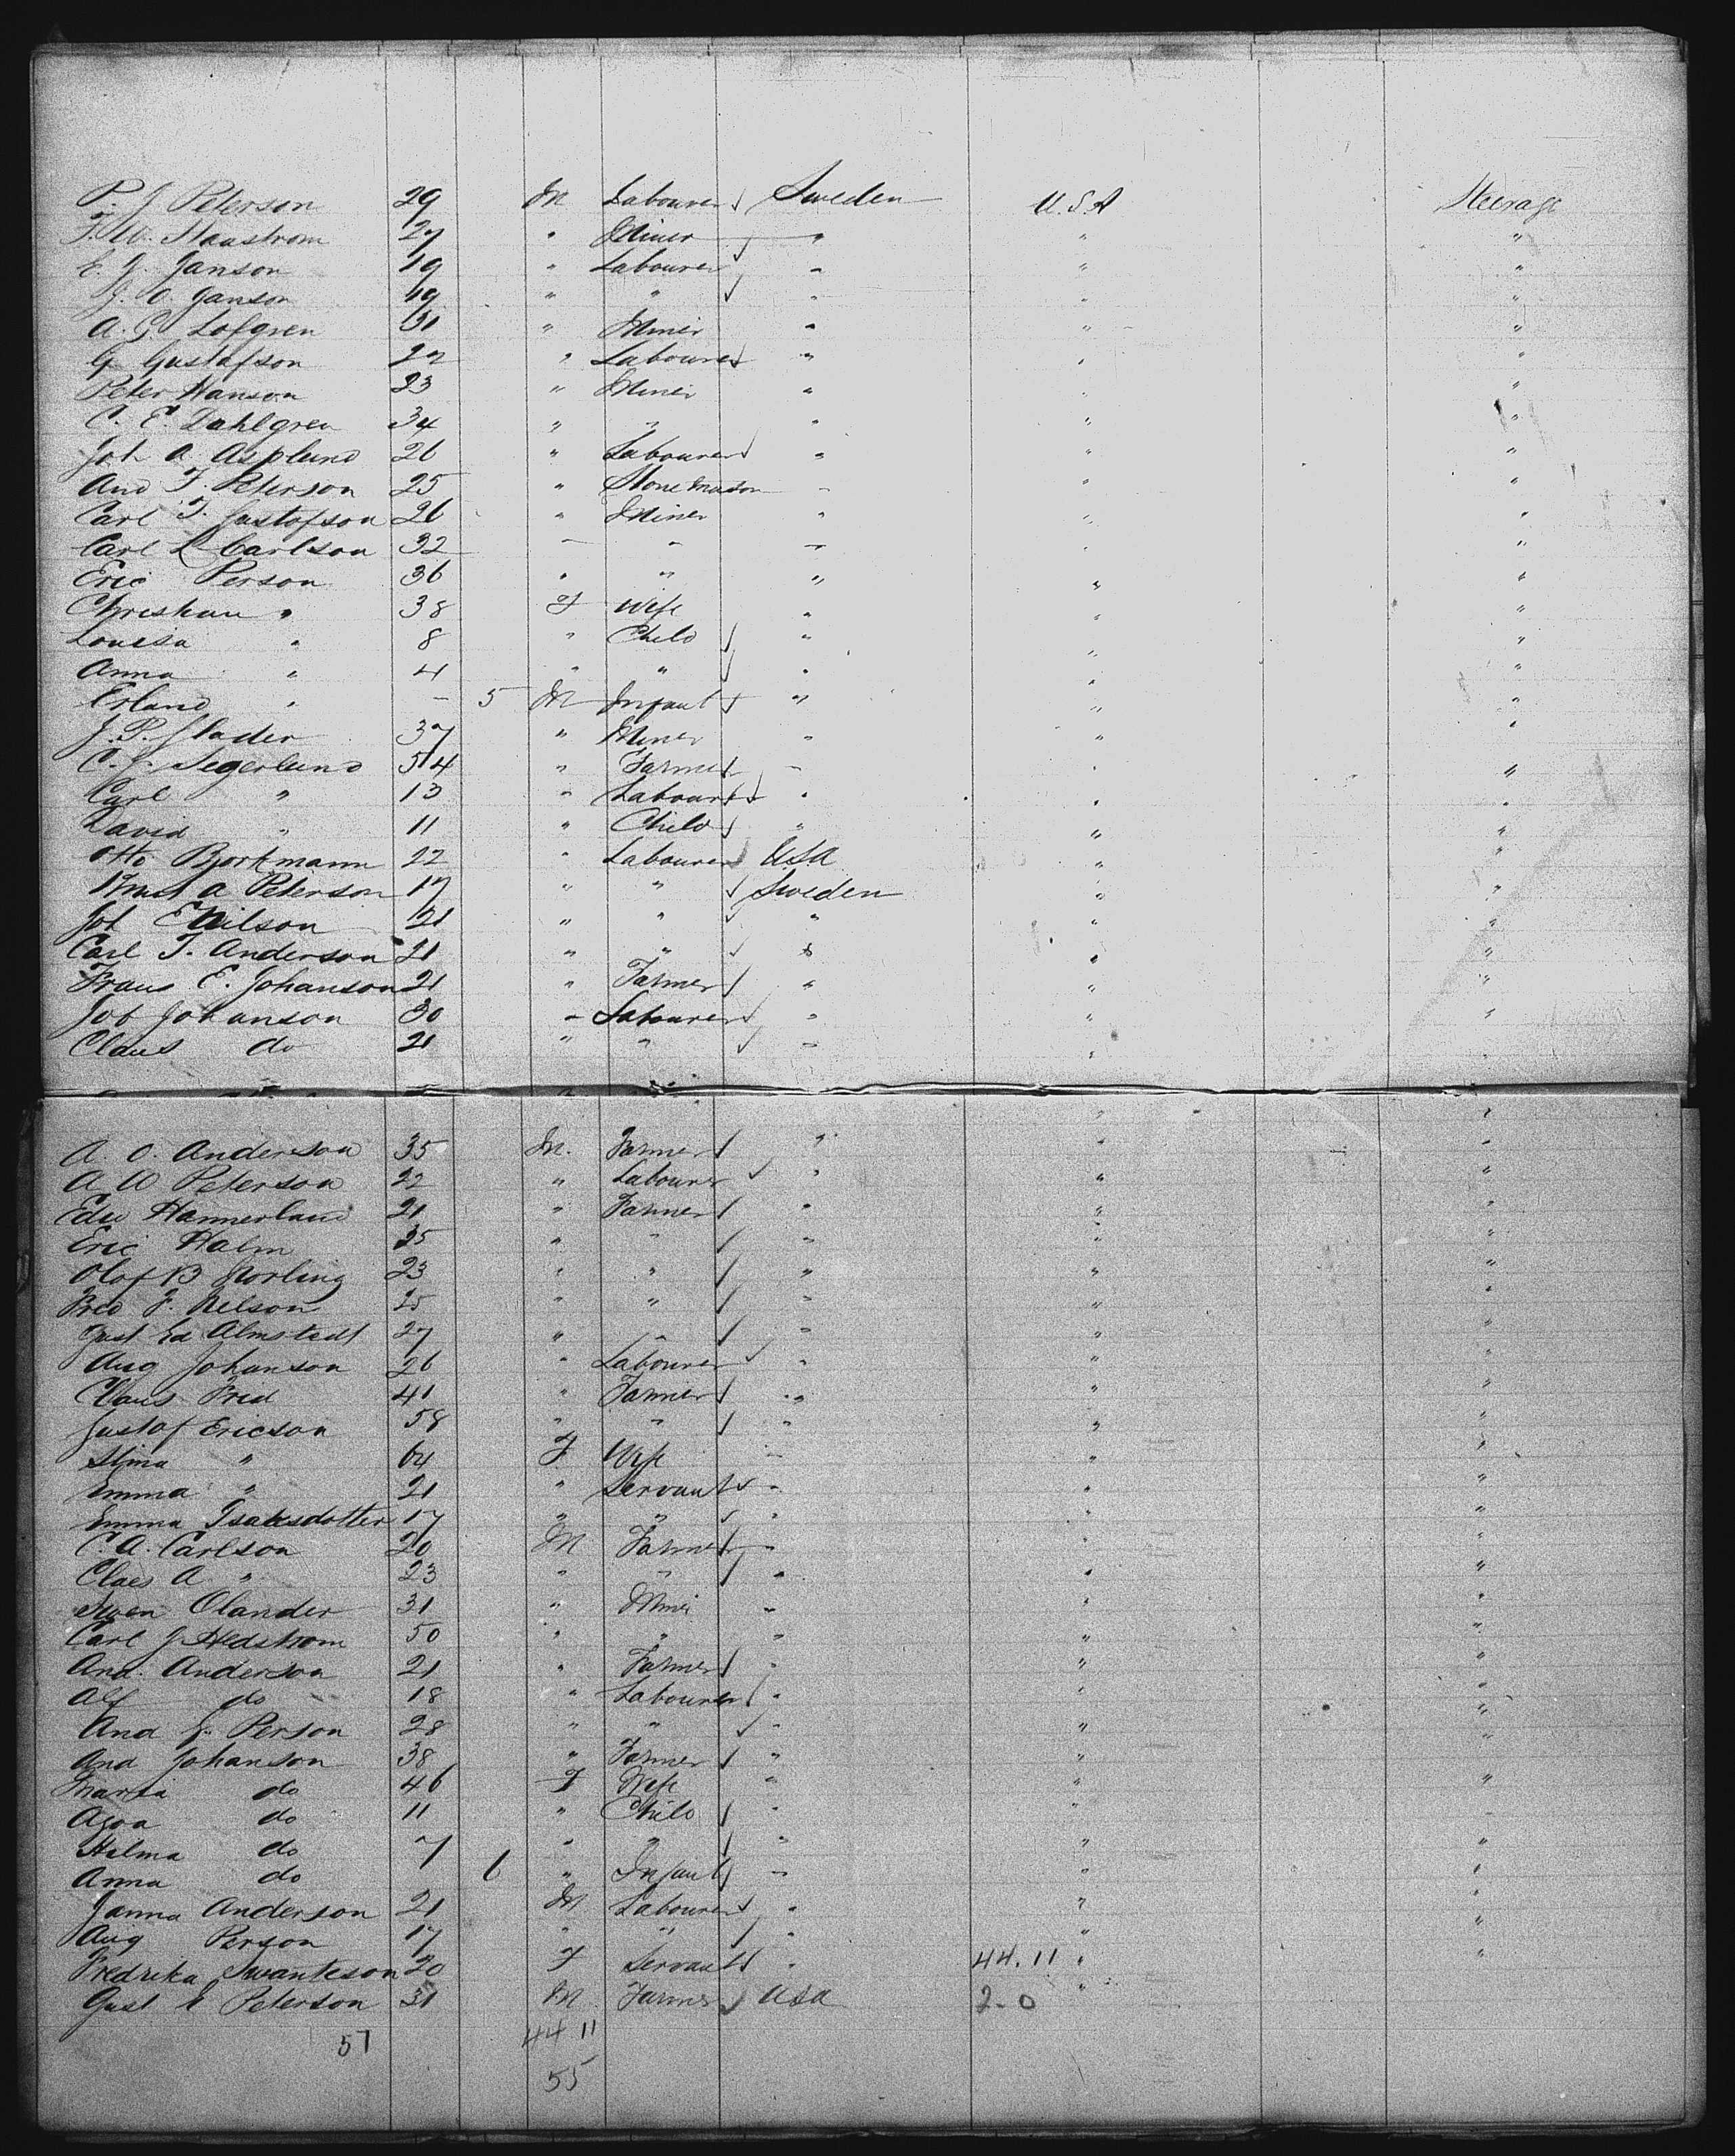 P. J. Peterson 29 M Labourer Sweden U.S.A Steerage
F. W. Haastrom 27 " Miner " " "
E. J. Janson 19 " Labourer " " "
J. O. Janson 19 " " " " "
A. G. Lofgren 31 " Miner " " "
G Gustafson 27 " Labourer " " "
Peter Hanson 23 " Miner " " "
C. E. Dahlgren 34 " " " " "
Joh A. Asplund 26 " Labourer " " "
And F. Peterson 25 " Stone mason " " "
Carl F. Gustafson 26 " Miner " " "
Carl L Carlson 32 " " " " "
Eric Person 36 " " " " "
Christian " 38 F Wife " " "
Louisa " 8 " Child " " "
Anna " 4 " " " " "
Erland " - 5 M Infant " " "
J. P. Slader 37 " Miner " " "
C. J. Segerlund 54 " Farmer " " "
Carl " 13 " Labourer " " "
David " 11 " Child " " "
Otto Bjorkmann 22 " Labourer USA " "
A Peterson 17 " " Sweden " "
Joh E Nilson 21 " " " " "
Carl F. Anderson 21 " " " " "
Frans E. Johanson 21 " Farmer " " "
Joh Johanson 30 " Labourer " " "
Claus do 21 " " " " "
A. O. Anderson 35 M. Farmer " " "
A W Peterson 22 " Labourer " " "
Edw Hannerland 21 " Farmer " " "
Eric Halm 35 " " " " "
Olof B Norling 23 " " " " "
Fred F. Nelson 25 " " " " "
Gust Ed Almstedt 27 " " " " "
Aug Johanson 26 " Labourer " " "
Claus Fred 41 " Farmer " " "
Gustaf Ericson 58 " " " " "
Stina " 64 F Wife " " "
Emma " 21 " Servant " " "
Emma Isaksdotter 17 " " " " "
C. A. Carlson 20 M Farmer " " "
Claes A " 23 " " " " "
Swen Olander 31 " Miner " " "
Carl J Hedstrom 50 " " " " "
And. Anderson 21 " Farmer " " "
Alf do 18 " Labourer " " "
And G. Person 28 " " " " "
And Johanson 38 " Farmer " " "
Maria do 46 F Wife " " "
Agda do 11 " Child " " "
Halma do 7 " " " " "
Anna do 6 " Infant " " "
Janna Anderson 21 M Labourer " " "
Aug Person 17 " " " " "
Fredrika Swanteson 20 F Servant " 44.11 " "
Gust Peterson 31 M Farmer USA 2-0 "
57 44 11
55